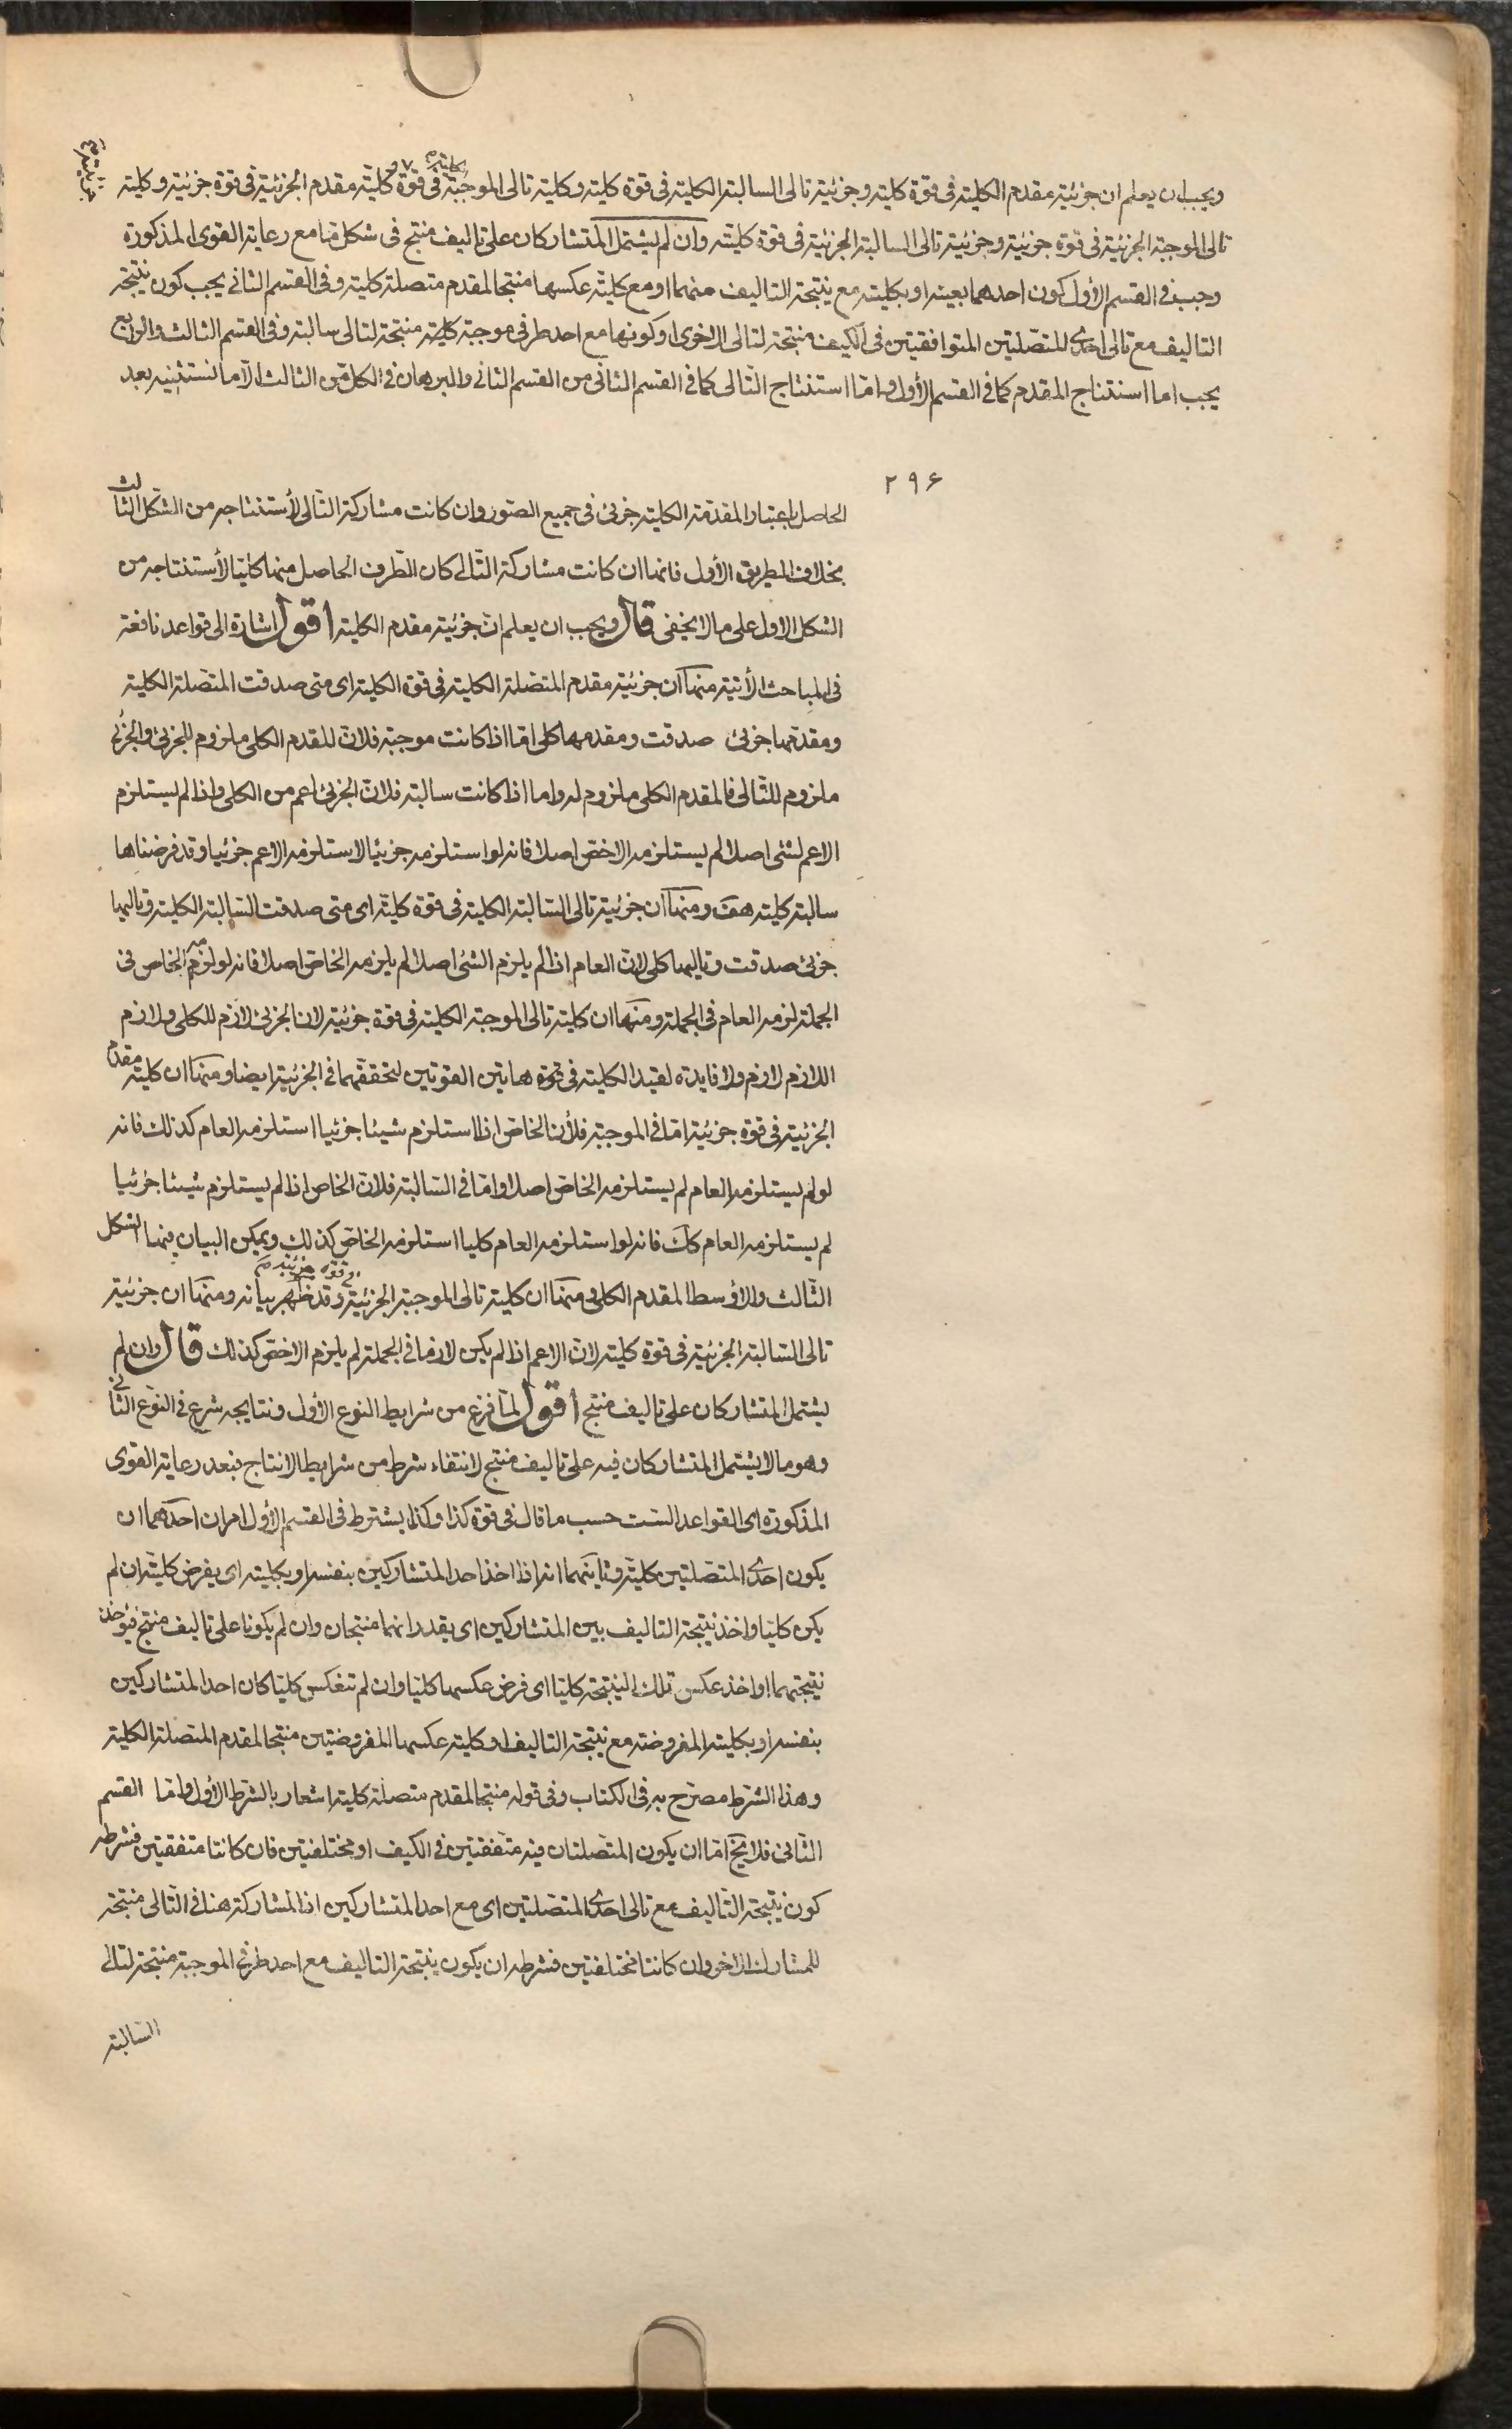 ويجب ان يعلم ان جزئية مقدم الكلية فى قوة كلية وجزئية تالى السالبة الكلية فى قوة كلية وكلية تالى الموجبة الكلية فى قوة كلية مقدم الجزئية فى قوة جزئية وكلية
تالى الموجبة الجزئية فى قوة جزئية وجزئية تالى السالبة الجزئية فى قوة كلية وان لم يشتمل المتشاركان على تاليف منتج فى شكل ما مع رعاية القوى المذكورة
وجب فى القسم الأول كون احدهما بعينه او بكليته مع نتيجة التاليف منهما او مع كلية عكسها منتجا لمقدم متصلة كلية وفى القسم الثانى يجب كون نتيجة
التاليف مع تالى احدى المتصلتين المتوافقتين فى الكيف منتجة لتالى الاخرى او كونها مع احد طرفى موجبة كلية منتجة لتالى سالبة وفى القسم الثالث والرابع
يجب اما استنتاج المقدم كما فى القسم الأول واما استنتاج التالى كما فى القسم الثانى من القسم الثانى والبرهان فى الكل من الثالث الا ما نستثنيه بعد
٢٩۶
الحاصل باعتبار المقدمة الكلية جزئى فى جميع الصور وان كانت مشاركة التالى لأستنتاجه من الشكل الثالث
بخلاف الطريق الأول فانها ان كانت مشاركة التالى كان الطرف الحاصل منها كليا لأستنتاجه من
الشكل الاول على ما لا يخفى قال ويجب ان يعلم ان جزئية مقدم الكلية اقول اشارة الى قواعد نافعة
فى المباحث الأتية منها ان جزئية مقدم المتصلة الكلية فى قوة الكلية اى متى صدقت المتصلة الكلية
ومقدمها جزئى صدقت ومقدمها كلى اما اذا كانت موجبة فلان المقدم الكلى ملزوم للجزئى والجزئى
ملزوم للتالى فالمقدم الكلى ملزوم له واما اذا كانت سالبة فلان الجزئى اعم من الكلى واذا لم يستلزم
الاعم لشئ اصلا لم يستلزمه الاخص اصلا فانه لو استلزمه جزئيا لاستلزمه الاعم جزئيا وقد فرضناها
سالبة كلية هف ومنها ان جزئية تالى السالبة الكلية فى قوة كلية اى متى صدقت السالبة الكلية وتاليها
جزئى صدقت وتاليها كلى لان العام اذا لم يلزم الشئ اصلا لم يلزمه الخاص اصلا فانه لو لزمه الخاص فى
الجملة لزمه العام فى الجملة ومنها ان كلية تالى الموجبة الكلية فى قوة جزئية لان الجزئى لازم للكلى ولازم
اللازم لازم ولا فايدة لقيد الكلية فى قوة هاتين القوتين لتحققهما فى الجزئية ايضا ومنها ان كلية مقدم
الجزئية فى قوة جزئية اما فى الموجبة فلأن الخاص اذا استلزم شيئا جزئيا استلزمه العام كذلك فانه
لو لم يستلزمه العام لم يستلزمه الخاص اصلا واما فى السالبة فلان الخاص اذا لم يستلزم شيئا جزئيا
لم يستلزمه العام كك فانه لو استلزمه العام كليا استلزمه الخاص كذلك ويمكن البيان فيهما الشكل
الثالث والأوسط المقدم الكلى ومنها ان كلية تالى الموجبة الجزئية فى قوة جزئية وقد ظهر بيانه ومنها ان جزئية
تالى السالبة الجزئية فى قوة كلية لان الاعم اذا لم يكن لازما فى الجملة لم يلزم الاخص كذلك قال وان لم
يشتمل المتشاركان على تاليف منتج اقول لما فرغ من شرايط النوع الأول ونتايجه شرع فى النوع الثانى
وهو ما لا يشتمل المتشاركان فيه على تاليف منتج لانتفاء شرط من شرايط الانتاج فبعد رعاية القوى
المذكورة اى القواعد الست حسب ما قال فى قوة كذا وكذا يشترط فى القسم الأول امران احدهما ان
يكون احدى المتصلتين كلية وثانيهما انه اذا اخذ احد المتشاركين بنفسه او بكليته اى يفرض كلية ان لم
يكن كليا واخذ نتيجة التاليف بين المتشاركين اى يقدر انهما منتجان وان لم يكونا على تاليف منتج فيؤخذ
نتيجتهما او اخذ عكس تلك النتيجة كليا اى فرض عكسها كليا وان لم تنعكس كليا كان احد المتشاركين
بنفسه او بكليته المفروضة مع نتيجة التاليف او كلية عكسها المفروضتين منتجا لمقدم المتصلة الكلية
وهذا الشرط مصرح به فى الكتاب وفى قوله منتجا لمقدم متصلة كلية اشعار بالشرط الأول واما القسم
الثانى فلا يخ اما ان يكون المتصلتان فيه متفقتين فى الكيف او مختلفتين فان كانتا متفقتين فشرطه
كون نتيجة التاليف مع تالى احدى المتصلتين اى مع احد المتشاركين اذ المشاركة هنا فى التالى منتجة
للمشارك الاخر وان كانتا مختلفتين فشرطه ان يكون نتيجة التاليف مع احد طرفى الموجبة منتجة لتالى
السالبة